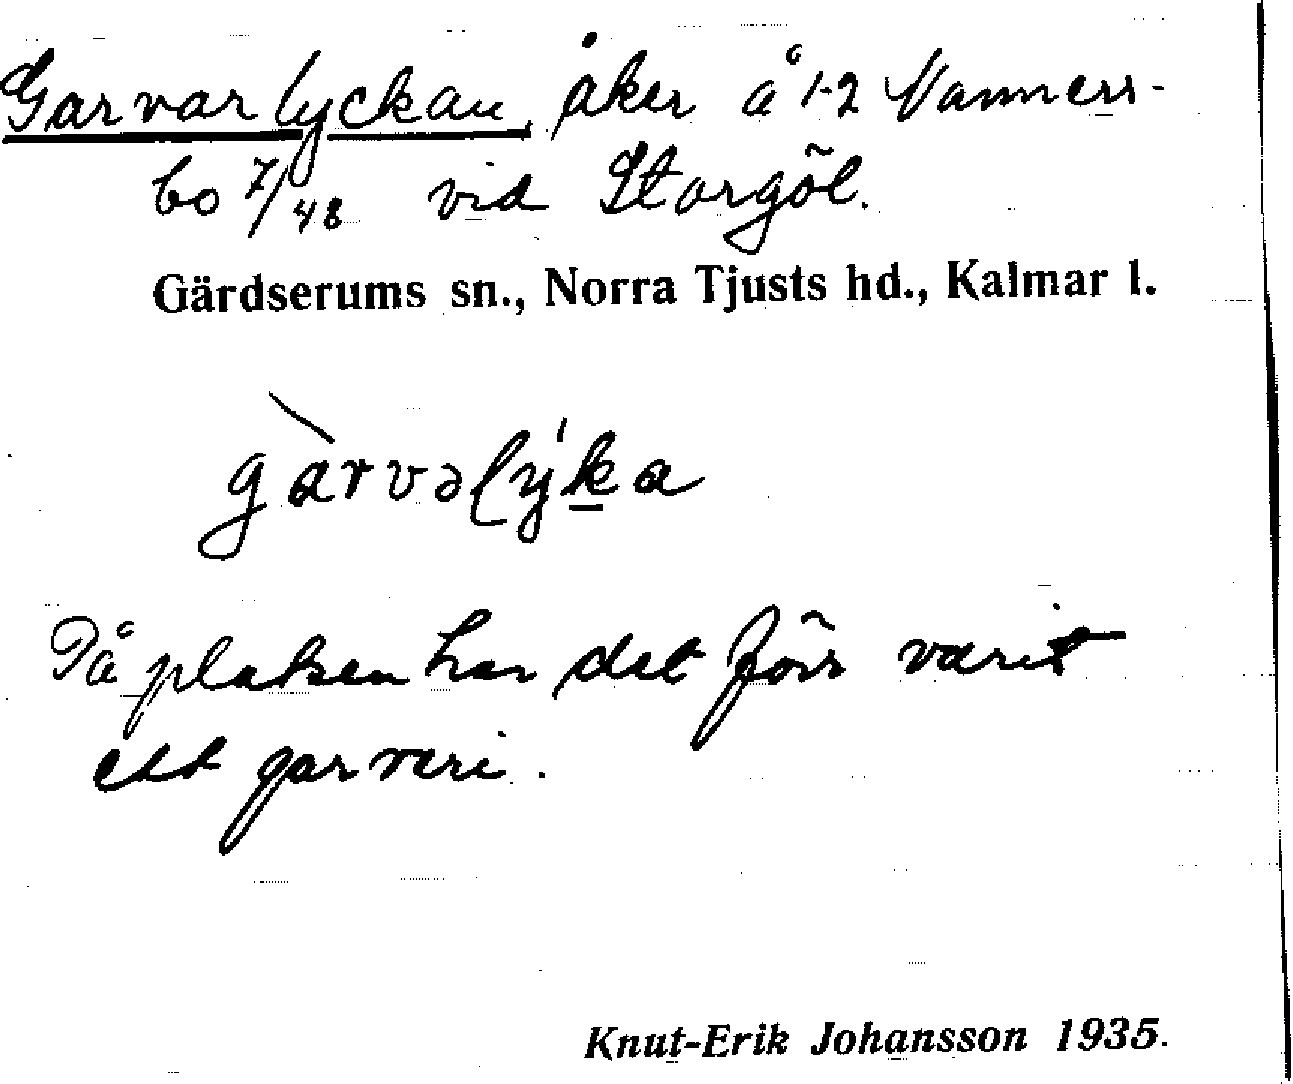 Garvarlyckan, åker å 1-2 Vammers-
bo 7/48 vid Storgöl.
Gärdserums sn., Norra Tjusts hd., Kalmar l.
gàrvəlýka
På platsen har det förr varit
ett garveri.
Knut-Erik Johansson 1935.